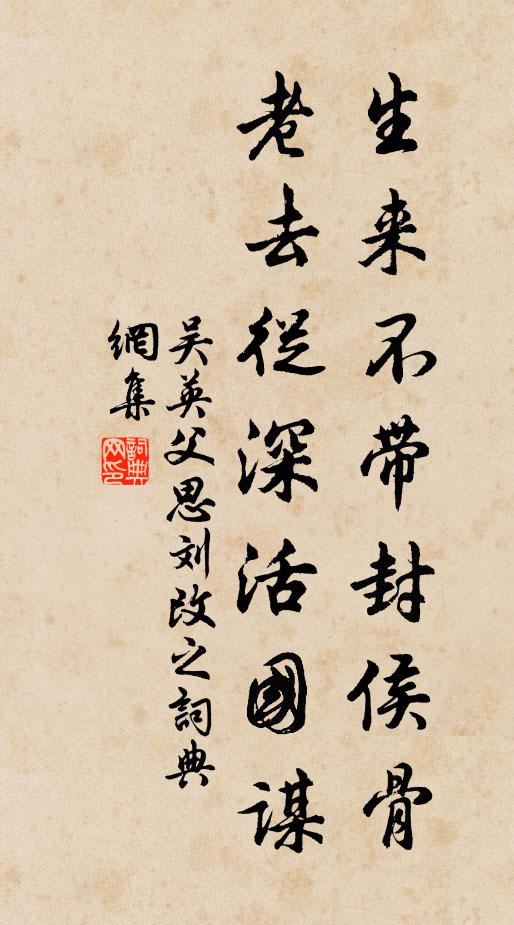 生来不带封侯骨
老去從深活國謀
吴英父思刘改之詞典
網集
詞典网印